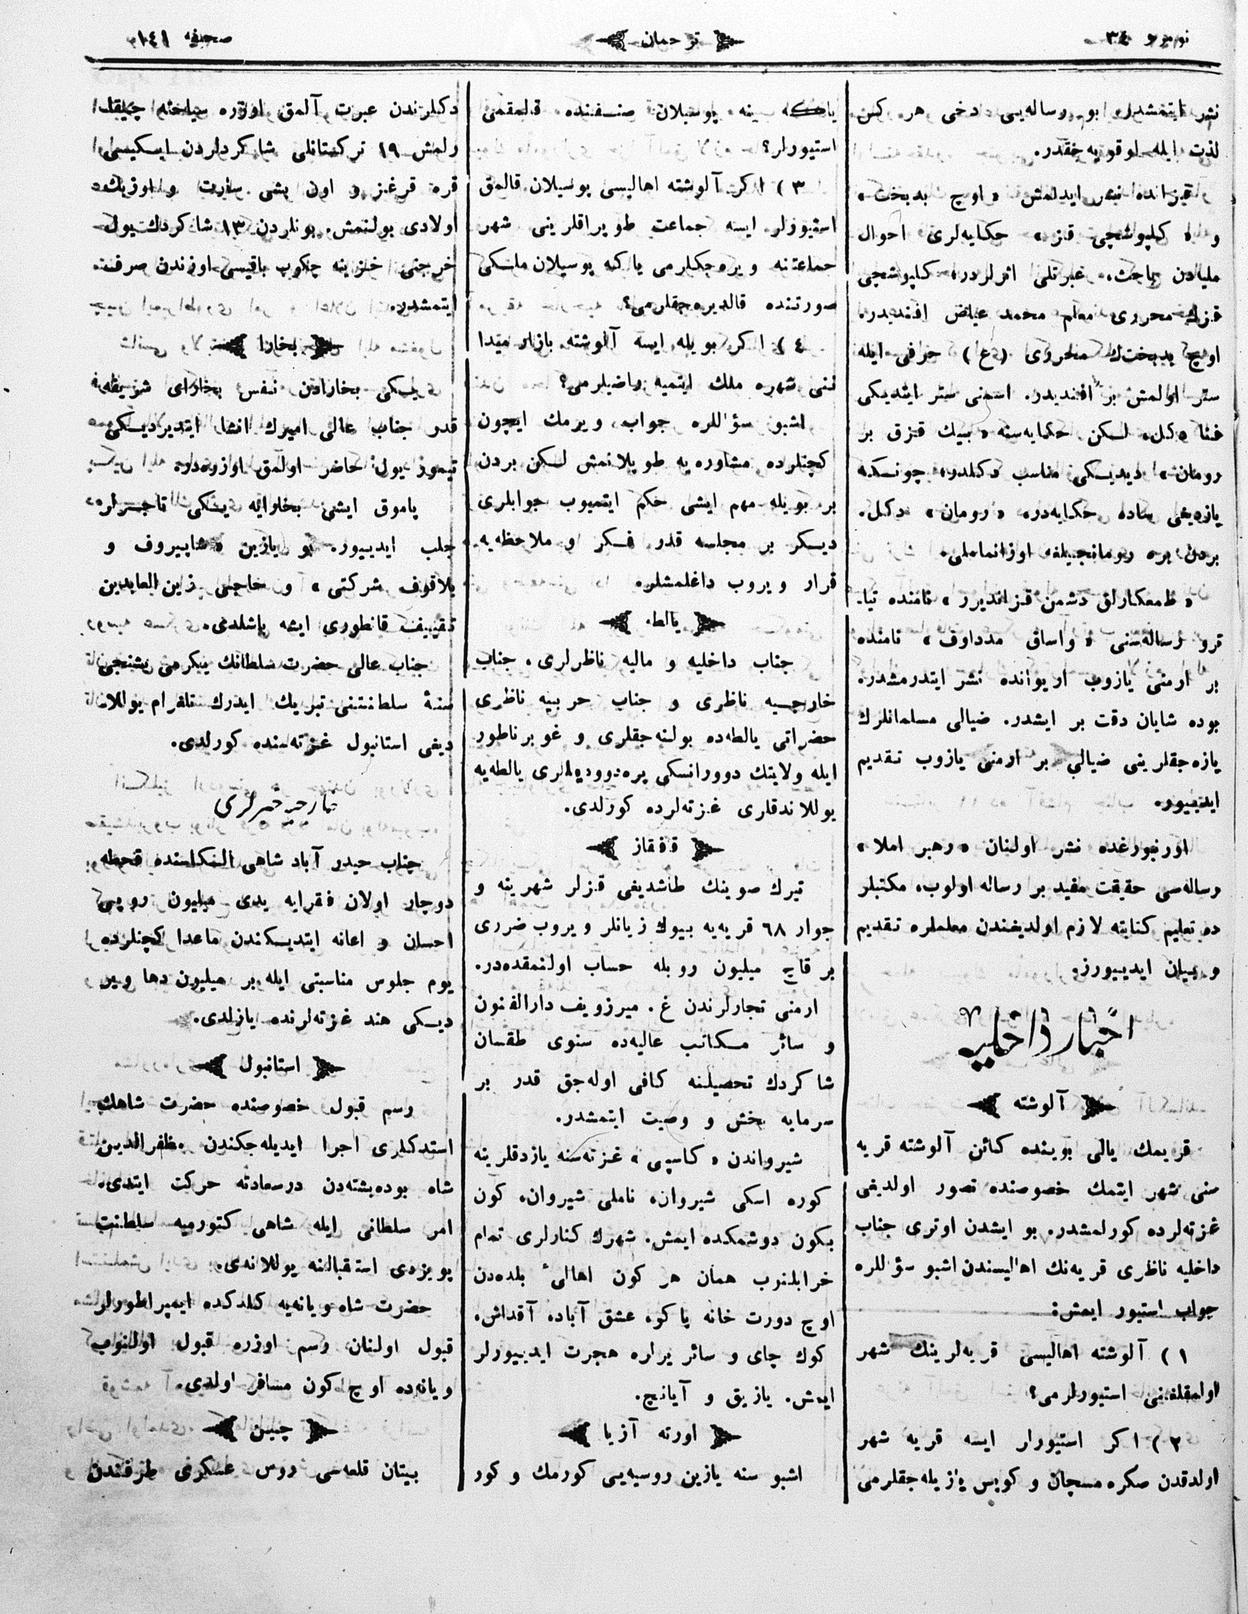 نومرو ٣٤
ترجمان
صحيفه ١٤١
نشر ايتمشدر. بو رساله‌يى دخى هر كس
لذت ايله اوقويه‌جقدر.
قزانده نشر ايدلمش «اوچ بدبخت»
و «كلپوشچى قز» حكايه‌لرى احوال
مليه‌دن باحث، عبرتلى اثرلردر. كلپوشچى
قزك محررى معلم محمد عياض افنديدر.
اوچ بدبختك محررى (ع) حرفى ايله
ستر اولمش بر افنديدر. اسمنى ستر ايتديكى
فنا دكل، لكن حكايه‌سنه «بيك قزق بر
رومان» ديديكى مناسب دكلدر. چونكه
يازديغى ساده حكايه‌در. «رومان» دكل.
بردن بره رومانجيلغه اوزانماملى.
«طمعكارلق دشمن قزانديرر» نامنده تيا-
ترو رساله‌سنى «واساق مددوف» نامنده
بر ارمنى يازوب اريوانده نشر ايتدرمشدر.
بوده شايان دقت بر ايشدر. ضيالى مسلمانلرك
يازه‌جقلرينى ضيالى بر ارمنى يازوب تقديم
ايديور.
اورنبورغده نشر اولنان «رهبر املا»
رساله‌سى حقيقت مفيد بر رساله اولوب، مكتبلر
ده تعليم كتابته لازم اولديغندن معلملره تقديم
و بيان ايدييورز.
اخبار داخليه
آلوشته
قريمك يالى بوينده كائن آلوشته قريه
سنى شهر ايتمك خصوصنده تصور اولديغى
غزته‌لرده كورلمشدر. بو ايشدن اوترى جناب
داخليه ناظرى قريه‌نك اهاليسندن اشبو سؤاللره
جواب استيور ايمش:
١) آلوشته اهاليسى قريه‌لرينك شهر
اولمقلغنى استيورلرمى؟
٢) اكر استيورلر ايسه قريه شهر
اولدقدن صكره مسچان و كوپس يازيله‌جقلرمى
ياخود ينه پوسيلان صنفنده قالمقمى
استيورلر؟
٣) اكر آلوشته اهاليسى پوسيلان قالمق
استيورلر ايسه جماعت طوپراقلرينى شهر
جماعتنه ويره‌جكلرمى ياكه پوسيلان ملكى
صورتنده قالديره‌جقلرمى؟
٤) اكر بويله ايسه آلوشته بازار ميدا
ننى شهره ملك ايتميه راضيلرمى؟
اشبو سؤاللره جواب ويرمك ايچون
كچنلرده مشاوره‌يه طوپلانمش لكن بردن
بر بويله مهم ايشى حكم ايتميوب جوابلرى
ديكر بر مجلسه قدر فكر و ملاحظه‌يه
قرار ويروب داغلمشلر.
يالطه
جناب داخليه و ماليه ناظرلرى، جناب
خارجيه ناظرى و جناب حربيه ناظرى
حضراتى يالطه‌ده بولنه‌جقلرى و غوبرناطور
ايله ولايتك دوورانسكى پره‌دووديتلرى يالطه‌يه
يوللاندقلرى غزته‌لرده كورلدى.
قافقاز
تيرك صوينك طاشديغى قزلر شهرينه و
جوار ٦٨ قريه‌يه بيوك زيانلر ويروب ضررى
بر قاچ ميليون روبله حساب اولنمقده‌در.
ارمنى تجارلرندن غ. ميرزويف دارالفنون
و سائر مكاتب عاليه‌ده سنوى طقسان
شاكردك تحصيلنه كافى اوله‌جق قدر بر
سرمايه بخش و وصيت ايتمشدر.
شيرواندن «كاسپى» غزته‌سنه يازدقلرينه
كوره اسكى شيروان، ناملى شيروان، كون
بكون دوشمكده ايمش. شهرك كنارلرى تمام
خرابلنوب همان هر كون اهالئ بلده‌دن
اوچ دورت خانه باكو، عشق آباد، آقداش،
كوك چاى و سائر يرلره هجرت ايدييورلر
ايمش. يازيق و آيانچ.
اورته آزيا
اشبو سنه يازين روسيه‌يى كورمك و كور
دكلرندن عبرت آلمق اوزره سياحته چيقا
رلمش ١٩ تركستانلى شاكردلردن ايكيسى
قره قرغز و اون بشى سارت و اوزبك
اولادى بولنمش. بونلردن ١٣ شاكردك يول
خرجنى خزينه چكوب باقيسى اوزندن صرف
ايتمشدر.
بخارا
يكى بخارادن نفس بخاراى شريفه
قدر جناب عالى اميرك انشا ايتديرديكى
تيمور يول حاضر اولمق اوزره‌در.
پاموق ايشى بخارايه يكى تاجرلر
جلب ايدييور. بو يازين «شاپيروف و
پلاقوف شركتى» و حاجى زين العابدين
تقييف قانطورى ايشه باشلدى.
جناب عالى حضرت سلطانك يكرمى بشنجى
سنۀ سلطنتنى تبريك ايدرك تلغرام يوللا
ديغى استانبول غزته‌سنده كورلدى.
خارجيه خبرلرى
جناب حيدر آباد شاهى الكاسنده قحطه
دوچار اولان فقرايه يدى ميليون روپى
احسان و اعانه ايتديكندن ماعدا كچنلرده
يوم جلوس مناسبتى ايله بر ميليون دها وير
ديكى هند غزته‌لرنده يازلدى.
استانبول
رسم قبول خصوصنده حضرت شاهك
استدكلرى اجرا ايديله‌جكندن مظفرالدين
شاه بوده‌پشته‌دن درسعادته حركت ايتدى.
امر سلطانى ايله شاهى كتورميه سلطنت
پويزدى استقبالنه يوللاندى.
حضرت شاه ويانه‌يه كلدكده ايمپراطورلر
قبول اولنان رسم اوزره قبول اولنوب
ويانه‌ده اوچ كون مسافر اولدى.
چين
بيتان قلعه‌سى روس عسكرى طرفندن